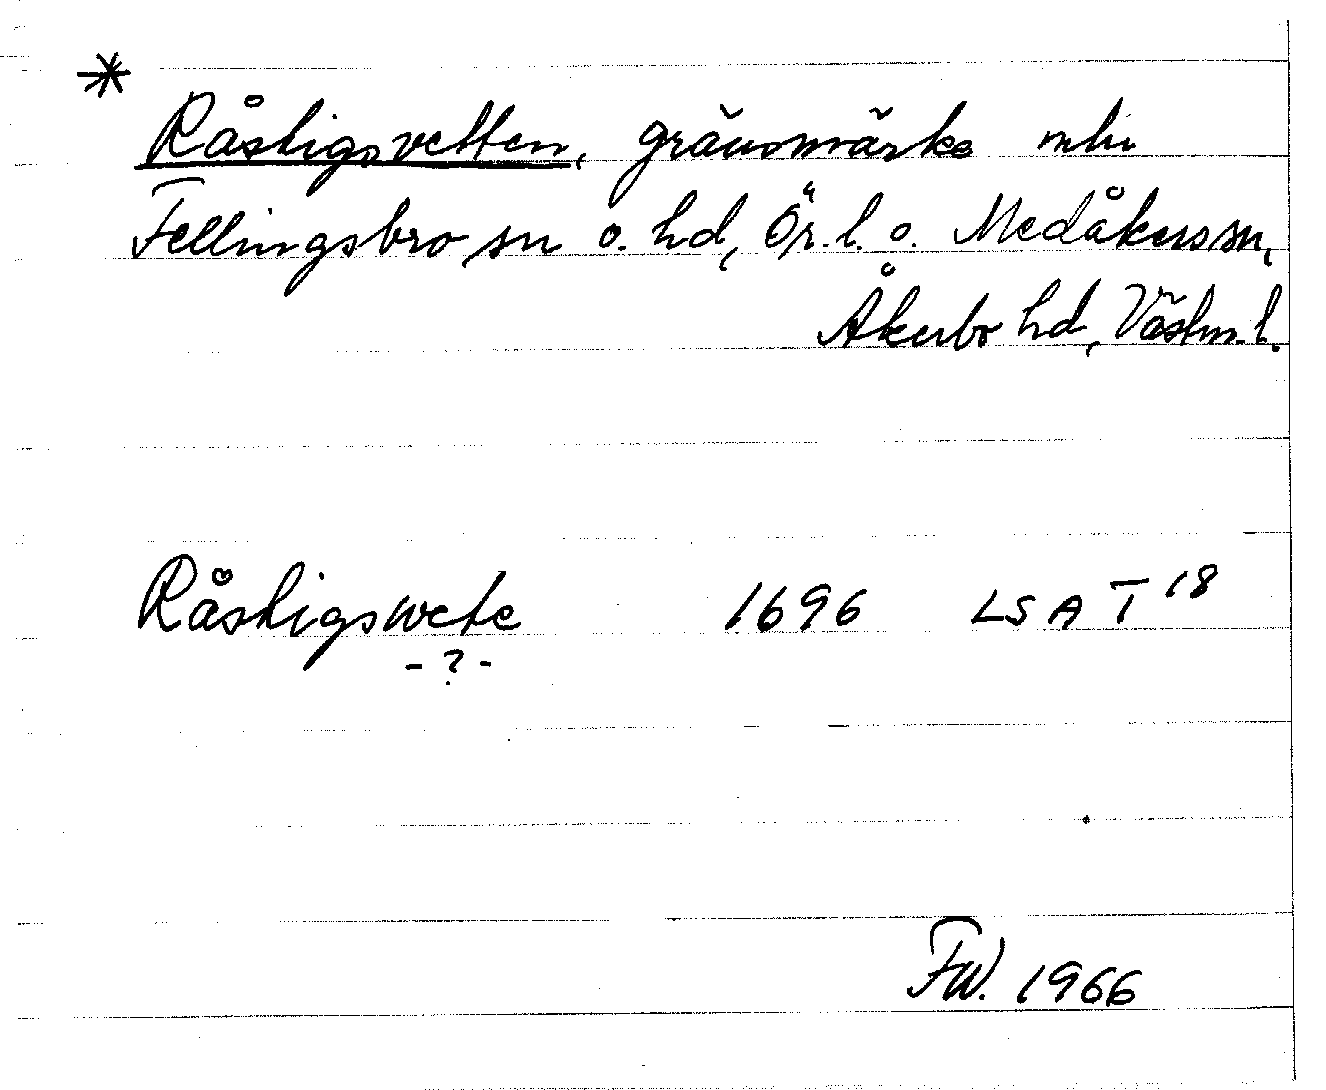 *
Råstigsvetten, gränsmärke mln
Fellingsbro sn o. hd, Ör. l. o. Medåkers sn,
Åkerbo hd, Västm. l.
Råstigswete 1696 LSA T 18
- ? -
FW. 1966